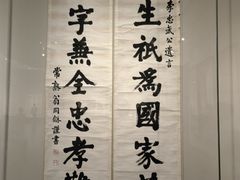 李忠武公遺言
生祇為國家
字無全忠孝
常熟翁同龢謹書